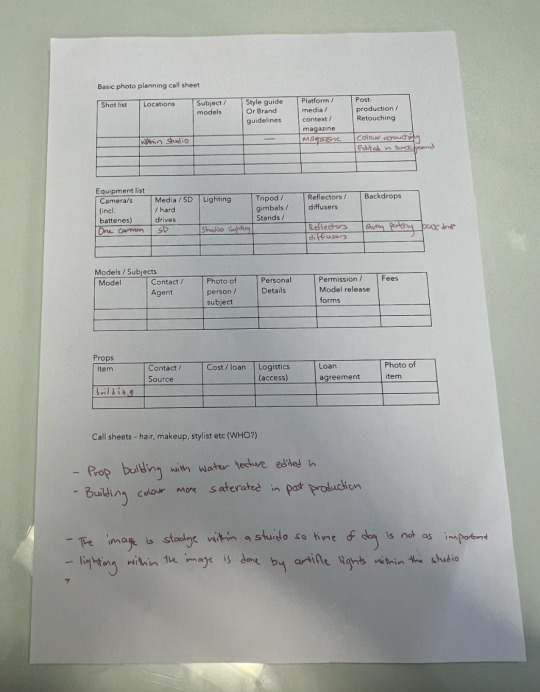 Basic photo planning call sheet
Shot list Locations Subject / models Style guide Or Brand guidelines Platform / media / context / magazine Post-production / Retouching
Within studio — Magazine Colour retouching
Edited in background
Equipment list
Camera/s (incl. batteries) Media / SD / hard drives Lighting Tripod / gimbals / Stands / Reflectors / diffusers Backdrops
One camera SD Studio lighting Reflectors back drop
diffusers
Models / Subjects
Model Contact / Agent Photo of person / subject Personal Details Permission / Model release forms Fees
Props
Item Contact / Source Cost / loan Logistics (access) Loan agreement Photo of item
building
Call sheets - hair, makeup, stylist etc (WHO?)
- Prop building with water texture edited in
- Building colour more saterated in post production
- The image is stadge within a stuido so time of day is not as important
- lighting within the image is done by artifie lights within the studio